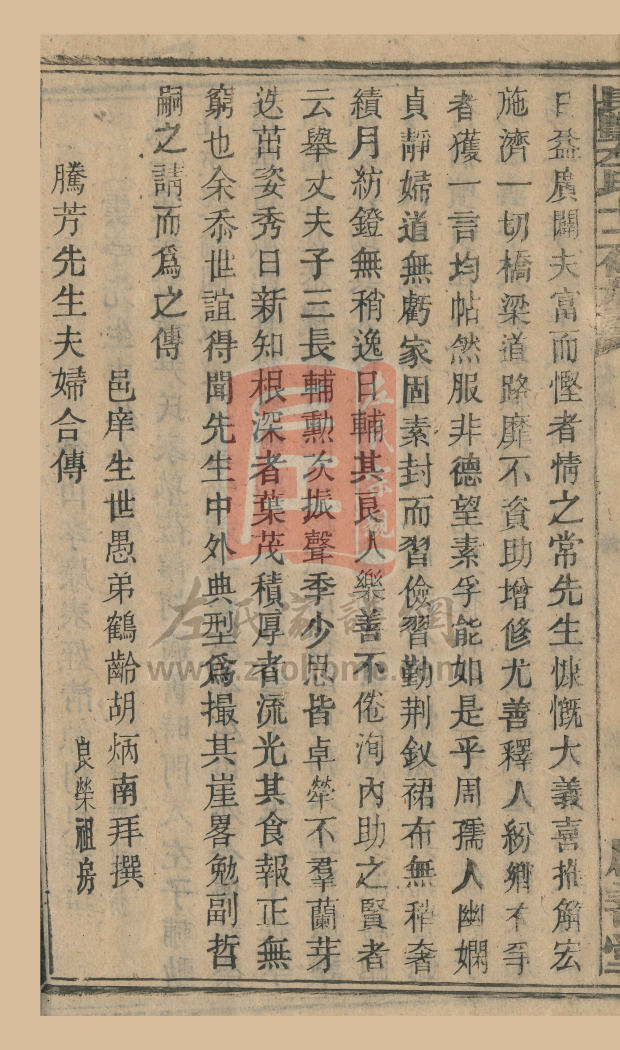 日益廣闢夫富而慳者情之常先生慷慨大義喜推解宏
施濟一切橋梁道路靡不資助增修尤善釋人紛鄉有爭
者獲一言均帖然服非德望素孚能如是乎周孺人幽嫻
貞靜婦道無虧家固素封而習儉習勤荆釵裙布無稍奢
績月紡鐙無稍逸日輔其良人樂善不倦洵內助之賢者
云舉丈夫子三長輔勳次振聲季少思皆卓犖不羣蘭芽
迭茁姿秀日新知根深者葉茂積厚者流光其食報正無
窮也余忝世誼得聞先生中外典型爲撮其崖畧勉副哲
嗣之請而爲之傳
邑庠生世愚弟鶴齡胡炳南拜撰
良榮祖房
騰芳先生夫婦合傳
左氏家譜網
www.zuohome.com